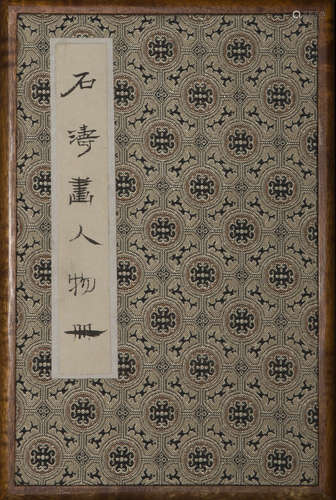 石濤畫人物冊